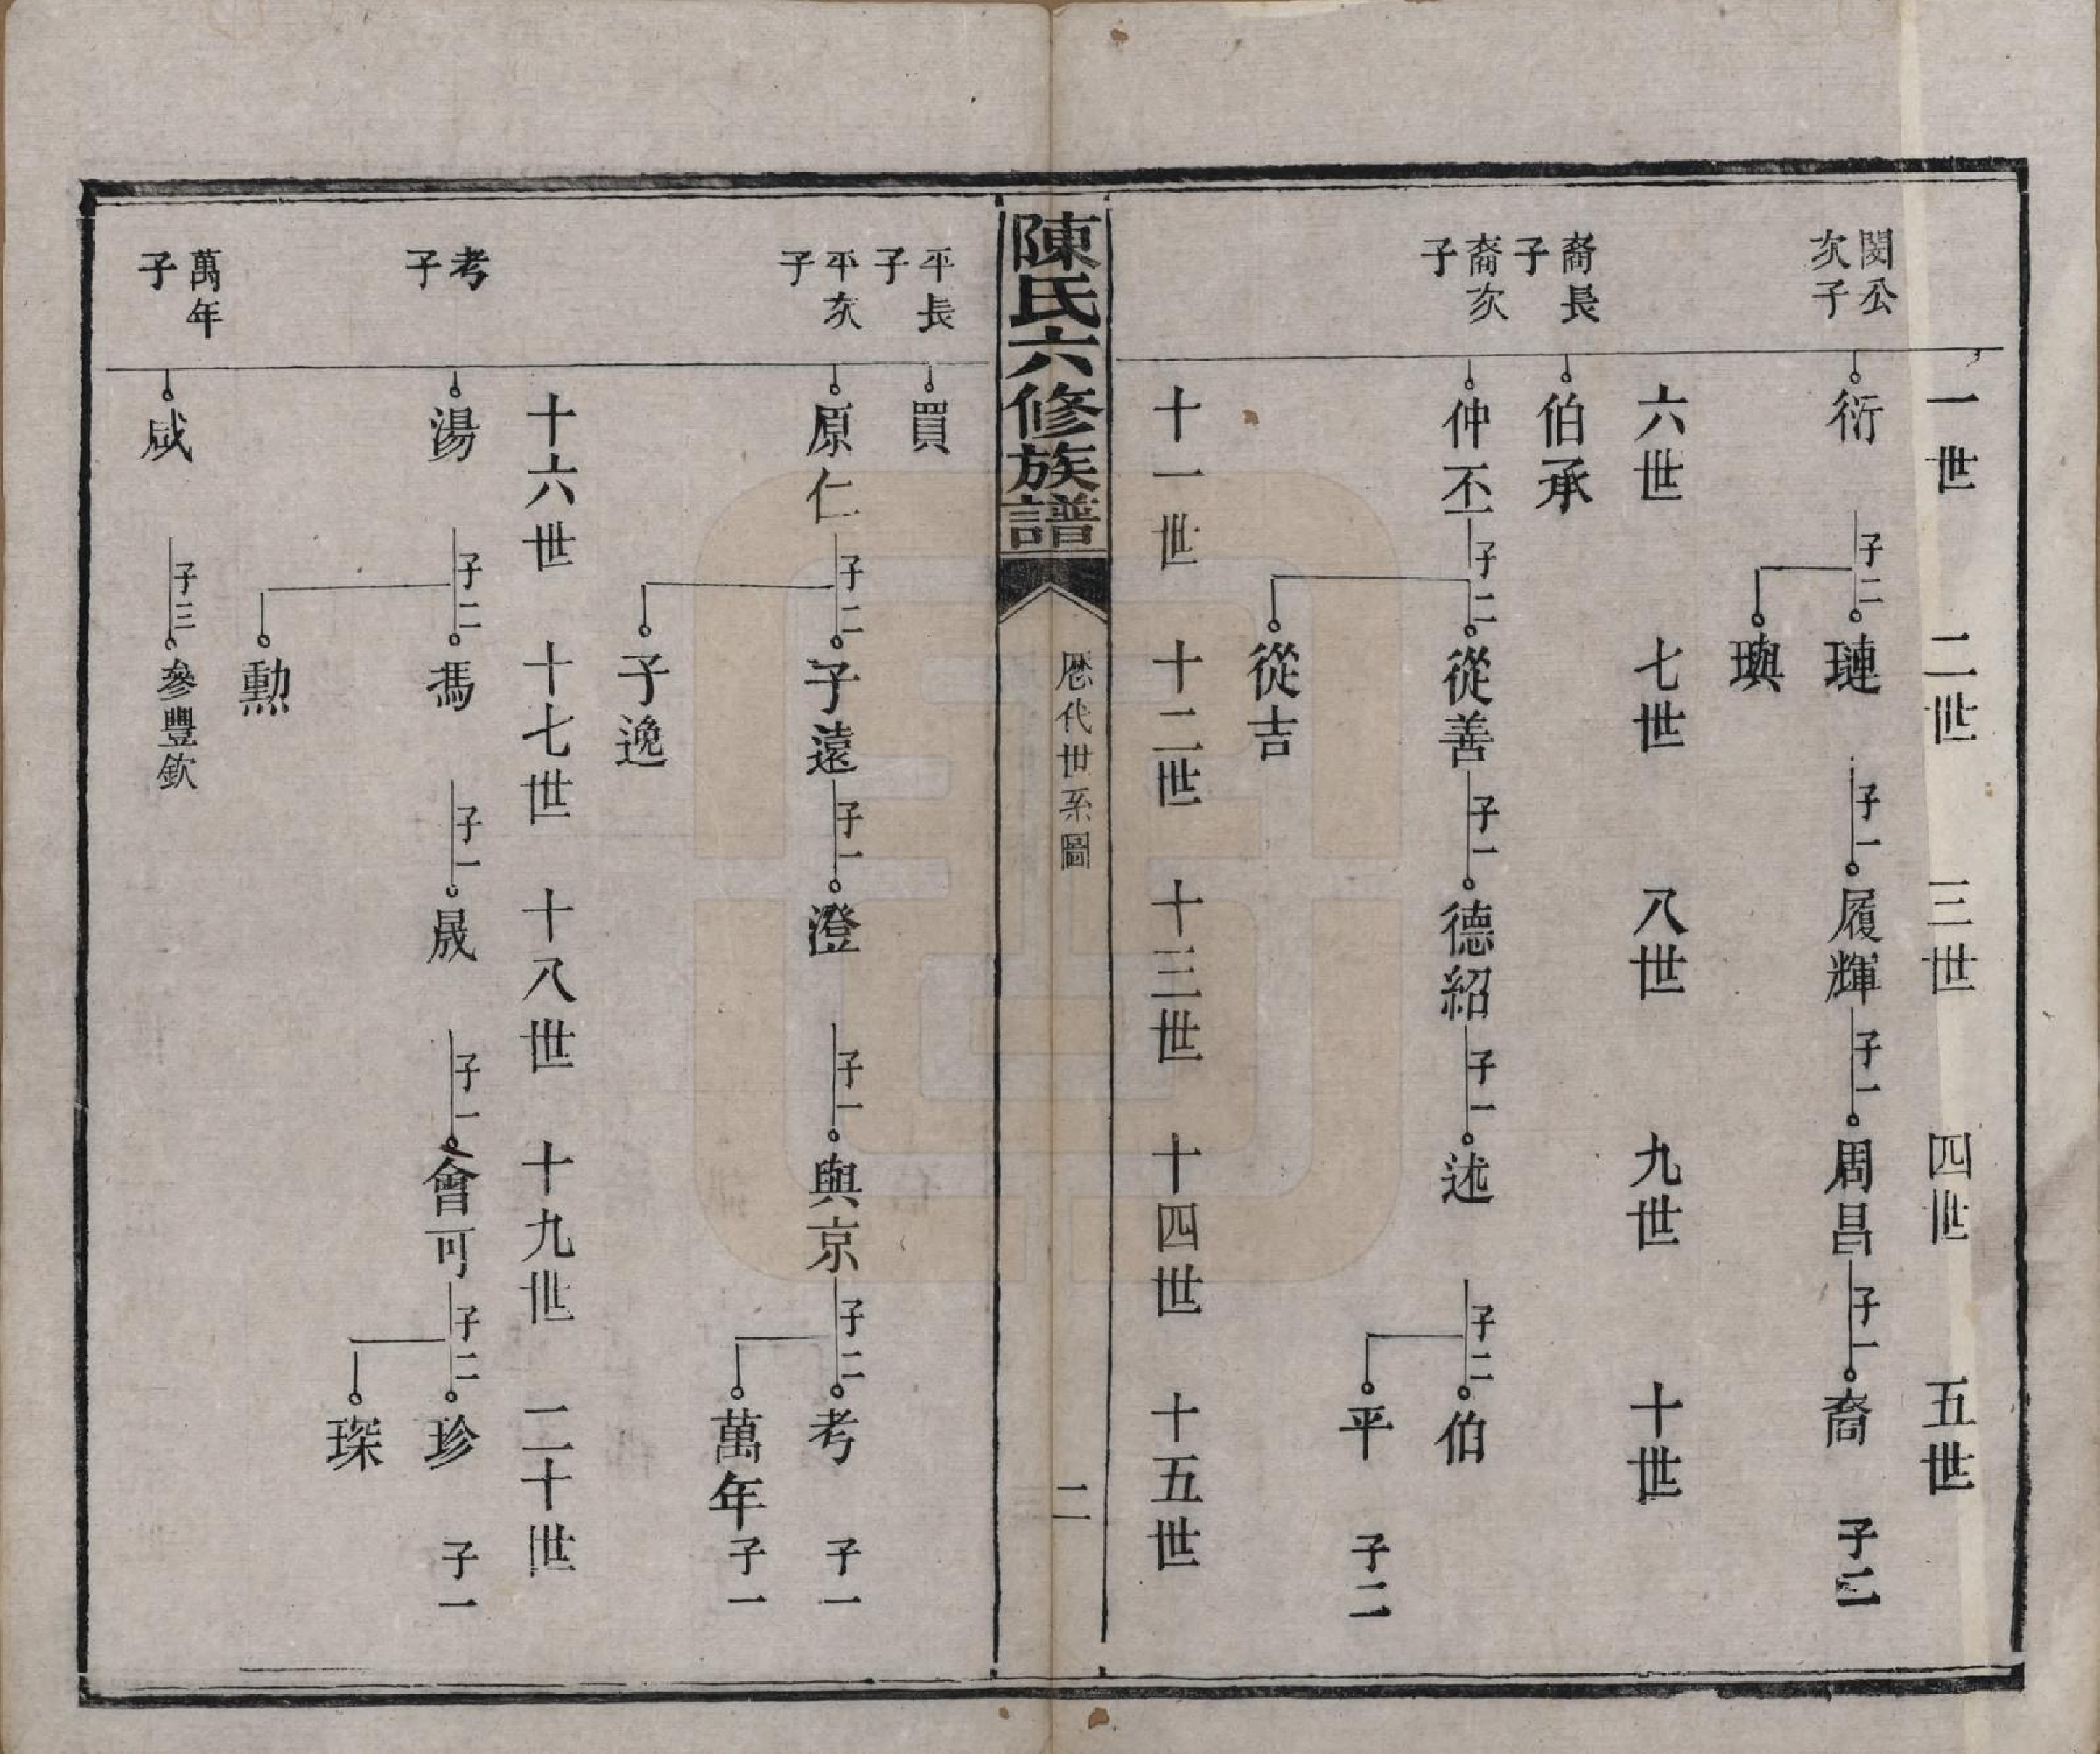 一世 二世 三世 四世 五世
閔公次子
衍 子二 璉 子一 履輝 子一 周昌 子一 裔 子二
璵
六世 七世 八世 九世 十世
裔長子
伯承
裔次子
仲丕 子二 從善 子一 德紹 子一 述 子二 伯
平 子二
從吉
十一世 十二世 十三世 十四世 十五世
陳氏六修族譜
歷代世系圖
二
平長子
買
平次子
原仁 子二 子遠 子一 澄 子一 與京 子二 考 子一
萬年 子一
子逸
十六世 十七世 十八世 十九世 二十世
考子
湯 子二 禡 子一 晟 子一 會可 子二 珍 子一
琛
勳
萬年子
咸 子三 參豐欽